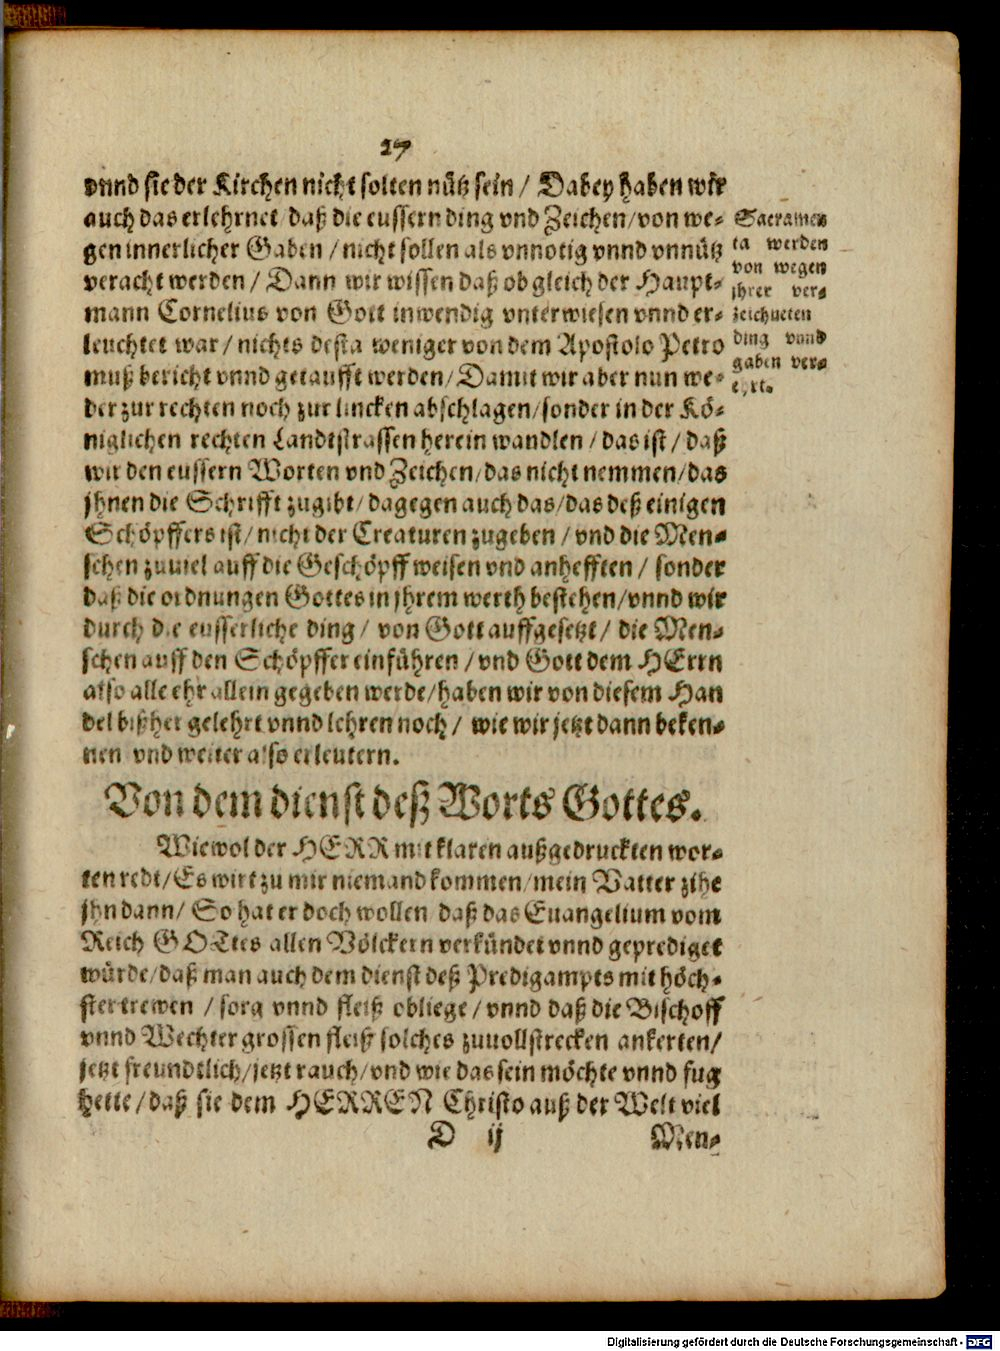 27
vnnd sie der Kirchen nicht solten nütz sein / Dabey haben wir
auch das erlehrnet / daß die eussern ding vnd Zeichen / von we-
gen innerlicher Gaben / nicht sollen als vnnotig vnnd vnnütz
veracht werden / Dann wir wissen daß ob gleich der Haupt-
mann Cornelius von Gott inwendig vnterwiesen vnnd er-
leuchtet war / nichts desta weniger von dem Apostolo Petro
muß bericht vnnd getaufft werden / Damit wir aber nun we-
der zur rechten noch zur lincken abschlagen / sonder in der Kö-
niglichen rechten Landtstrassen herein wandlen / das ist / daß
wir den eussern Worten vnd Zeichen / das nicht nemmen / das
jhnen die Schrifft zugibt / dagegen auch das / das deß einigen
Schöpffers ist / nicht der Creaturen zugeben / vnd die Men-
schen zuuiel auff die Geschöpff weisen vnd anhefften / sonder
daß die ordnungen Gottes in jhrem werth bestehen / vnnd wir
durch die eusserliche ding / von Gott auffgesetzt / die Men-
schen auff den Schöpffer einführen / vnd Gott dem HErrn
also alle ehr allein gegeben werde / haben wir von diesem Han
del bißher gelehrt vnnd lehren noch / wie wir jetzt dann beken-
nen vnd weiter also erleutern.
Sacramen
ta werden
von wegen
jhrer ver-
zeichneten
ding vnnd
gaben ver-
ehrt.
Von dem dienst deß Worts Gottes.
Wiewol der HERR mit klaren außgedruckten wor-
ten redt / Es wirt zu mir niemand kommen / mein Vatter zihe
jhn dann / So hat er doch wollen daß das Euangelium vom
Reich GOTtes allen Völckern verkündet vnnd geprediget
würde / daß man auch dem dienst deß Predigampts mit höch-
ster trewen / sorg vnnd fleiß obliege / vnnd daß die Bischoff
vnnd Wechter grossen fleiß solches zuuollstrecken ankerten /
jetzt freundtlich / jetzt rauch / vnd wie das sein möchte vnnd fug
hette / daß sie dem HERREN Christo auß der Welt viel
D ij Men-
Digitalisierung gefördert durch die Deutsche Forschungsgemeinschaft - DFG